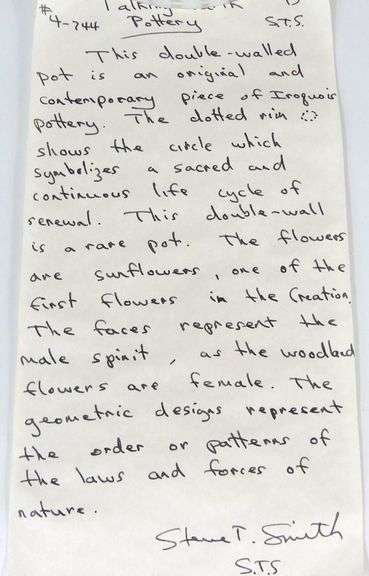 # Talking
4-744 Pottery S.T.S.
This double-walled
pot is an original and
contemporary piece of Iroquois
pottery. The dotted rim
shows the circle which
symbolizes a sacred and
continuous life cycle of
renewal. This double-wall
is a rare pot. The flowers
are sunflowers, one of the
first flowers in the Creation.
The faces represent the
male spirit, as the woodland
flowers are female. The
geometric designs represent
the order or patterns of
the laws and forces of
nature.
Steve T. Smith
S.T.S